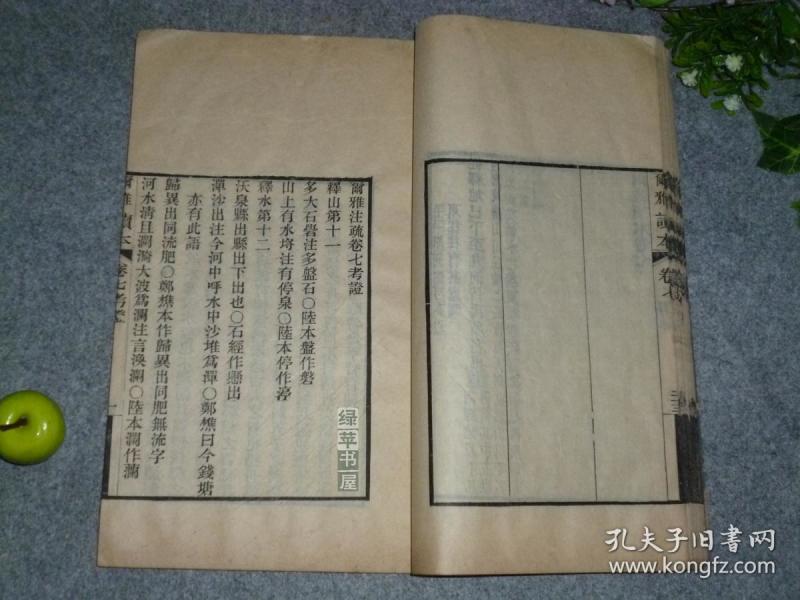 爾雅注疏卷七考證
釋山第十一
多大石礐注多盤石〇陸本盤作磐
山上有水埒注有停泉〇陸本停作渟
釋水第十二
沃泉縣出縣出下出也〇石經作懸出
潬沙出注今河中呼水中沙堆為潬〇鄭樵曰今錢塘
亦有此語
歸異出同流肥〇鄭樵本作歸異出同肥無流字
河水清且瀾漪大波為瀾注言渙瀾〇陸本瀾作灡
爾雅讀本
卷七考證
一
爾雅讀本
卷七
绿苹书屋
孔夫子旧书网
www.kongfz.com